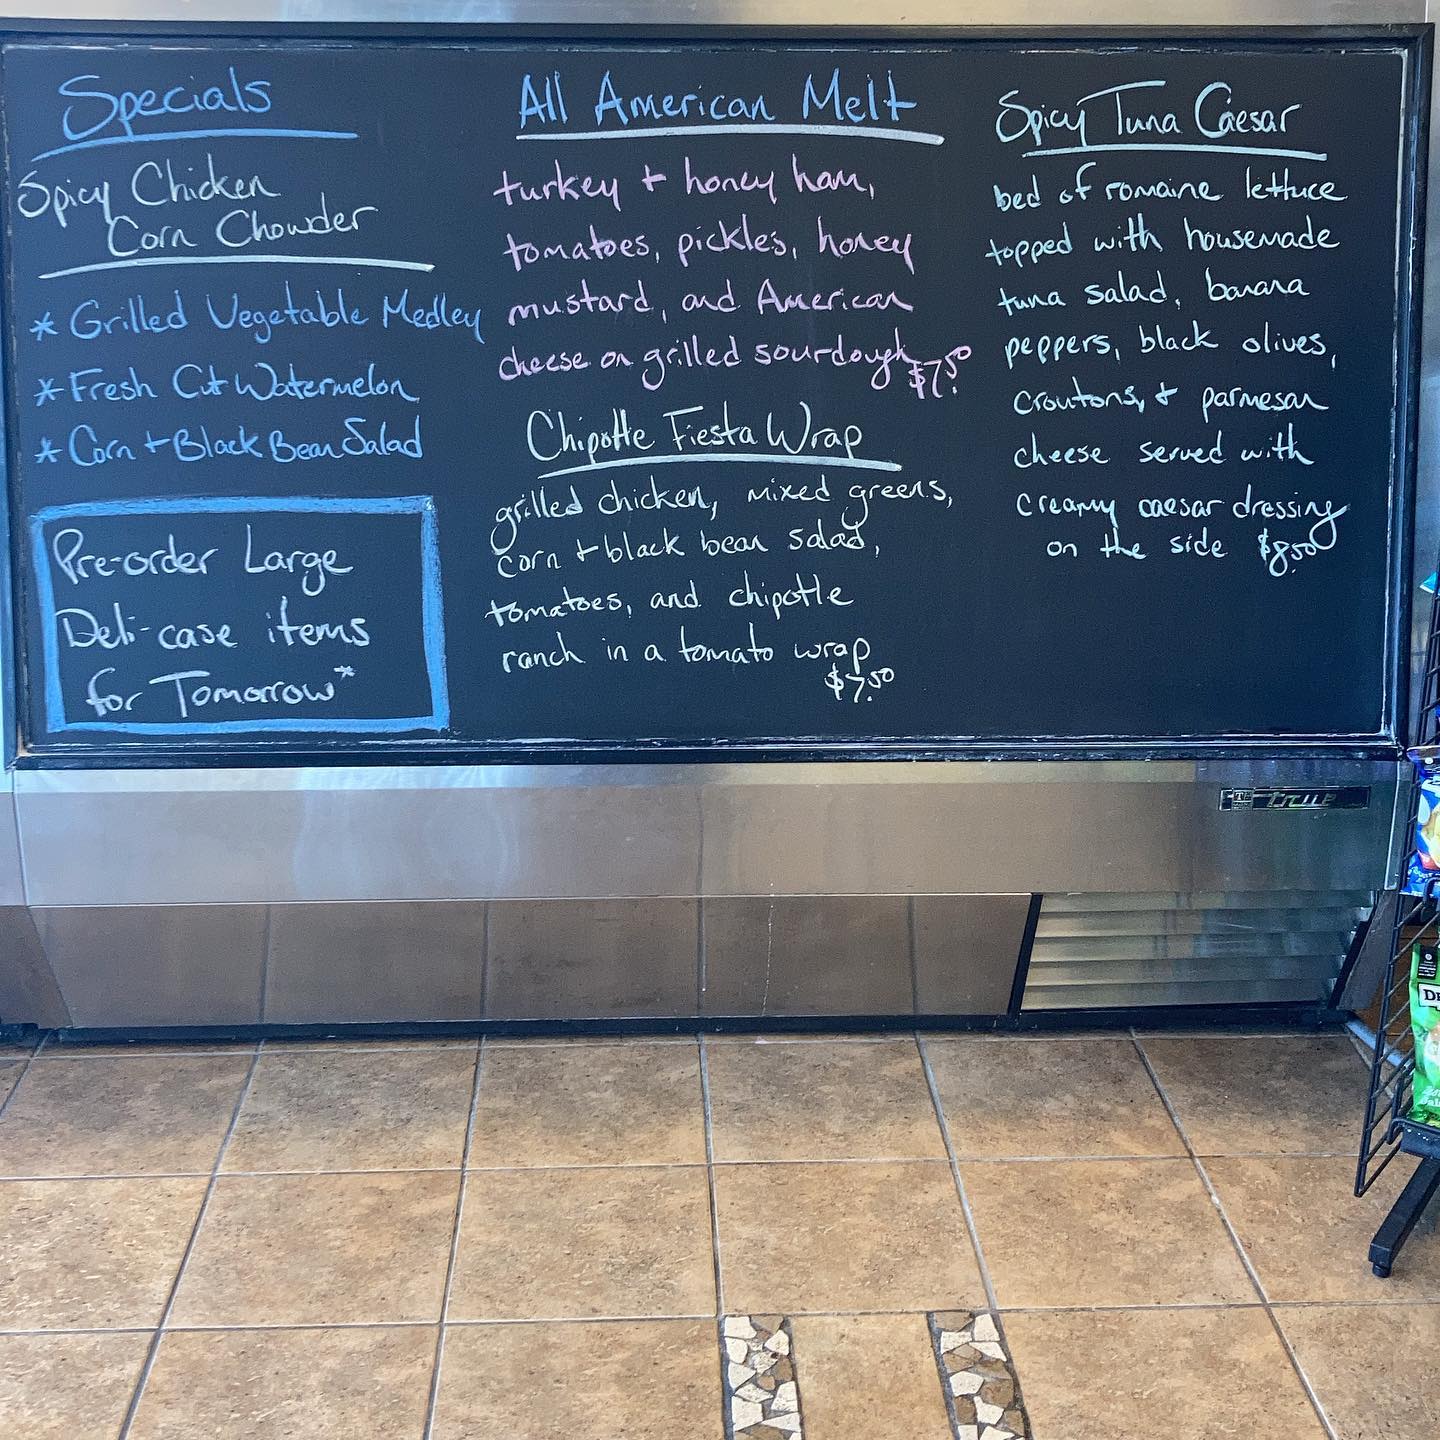 Specials
Spicy Chicken
Corn Chowder
* Grilled Vegetable Medley
* Fresh Cut Watermelon
* Corn + Black Bean Salad
Pre-order Large
Deli-case items
for Tomorrow*
All American Melt
turkey + honey ham,
tomatoes, pickles, honey
mustard, and American
cheese on grilled sourdough $7.50
Chipotle Fiesta Wrap
grilled chicken, mixed greens,
corn + black bean salad,
tomatoes, and chipotle
ranch in a tomato wrap
$7.50
Spicy Tuna Caesar
bed of romaine lettuce
topped with housemade
tuna salad, banana
peppers, black olives,
croutons, + parmesan
cheese served with
creamy caesar dressing
on the side $8.50
true